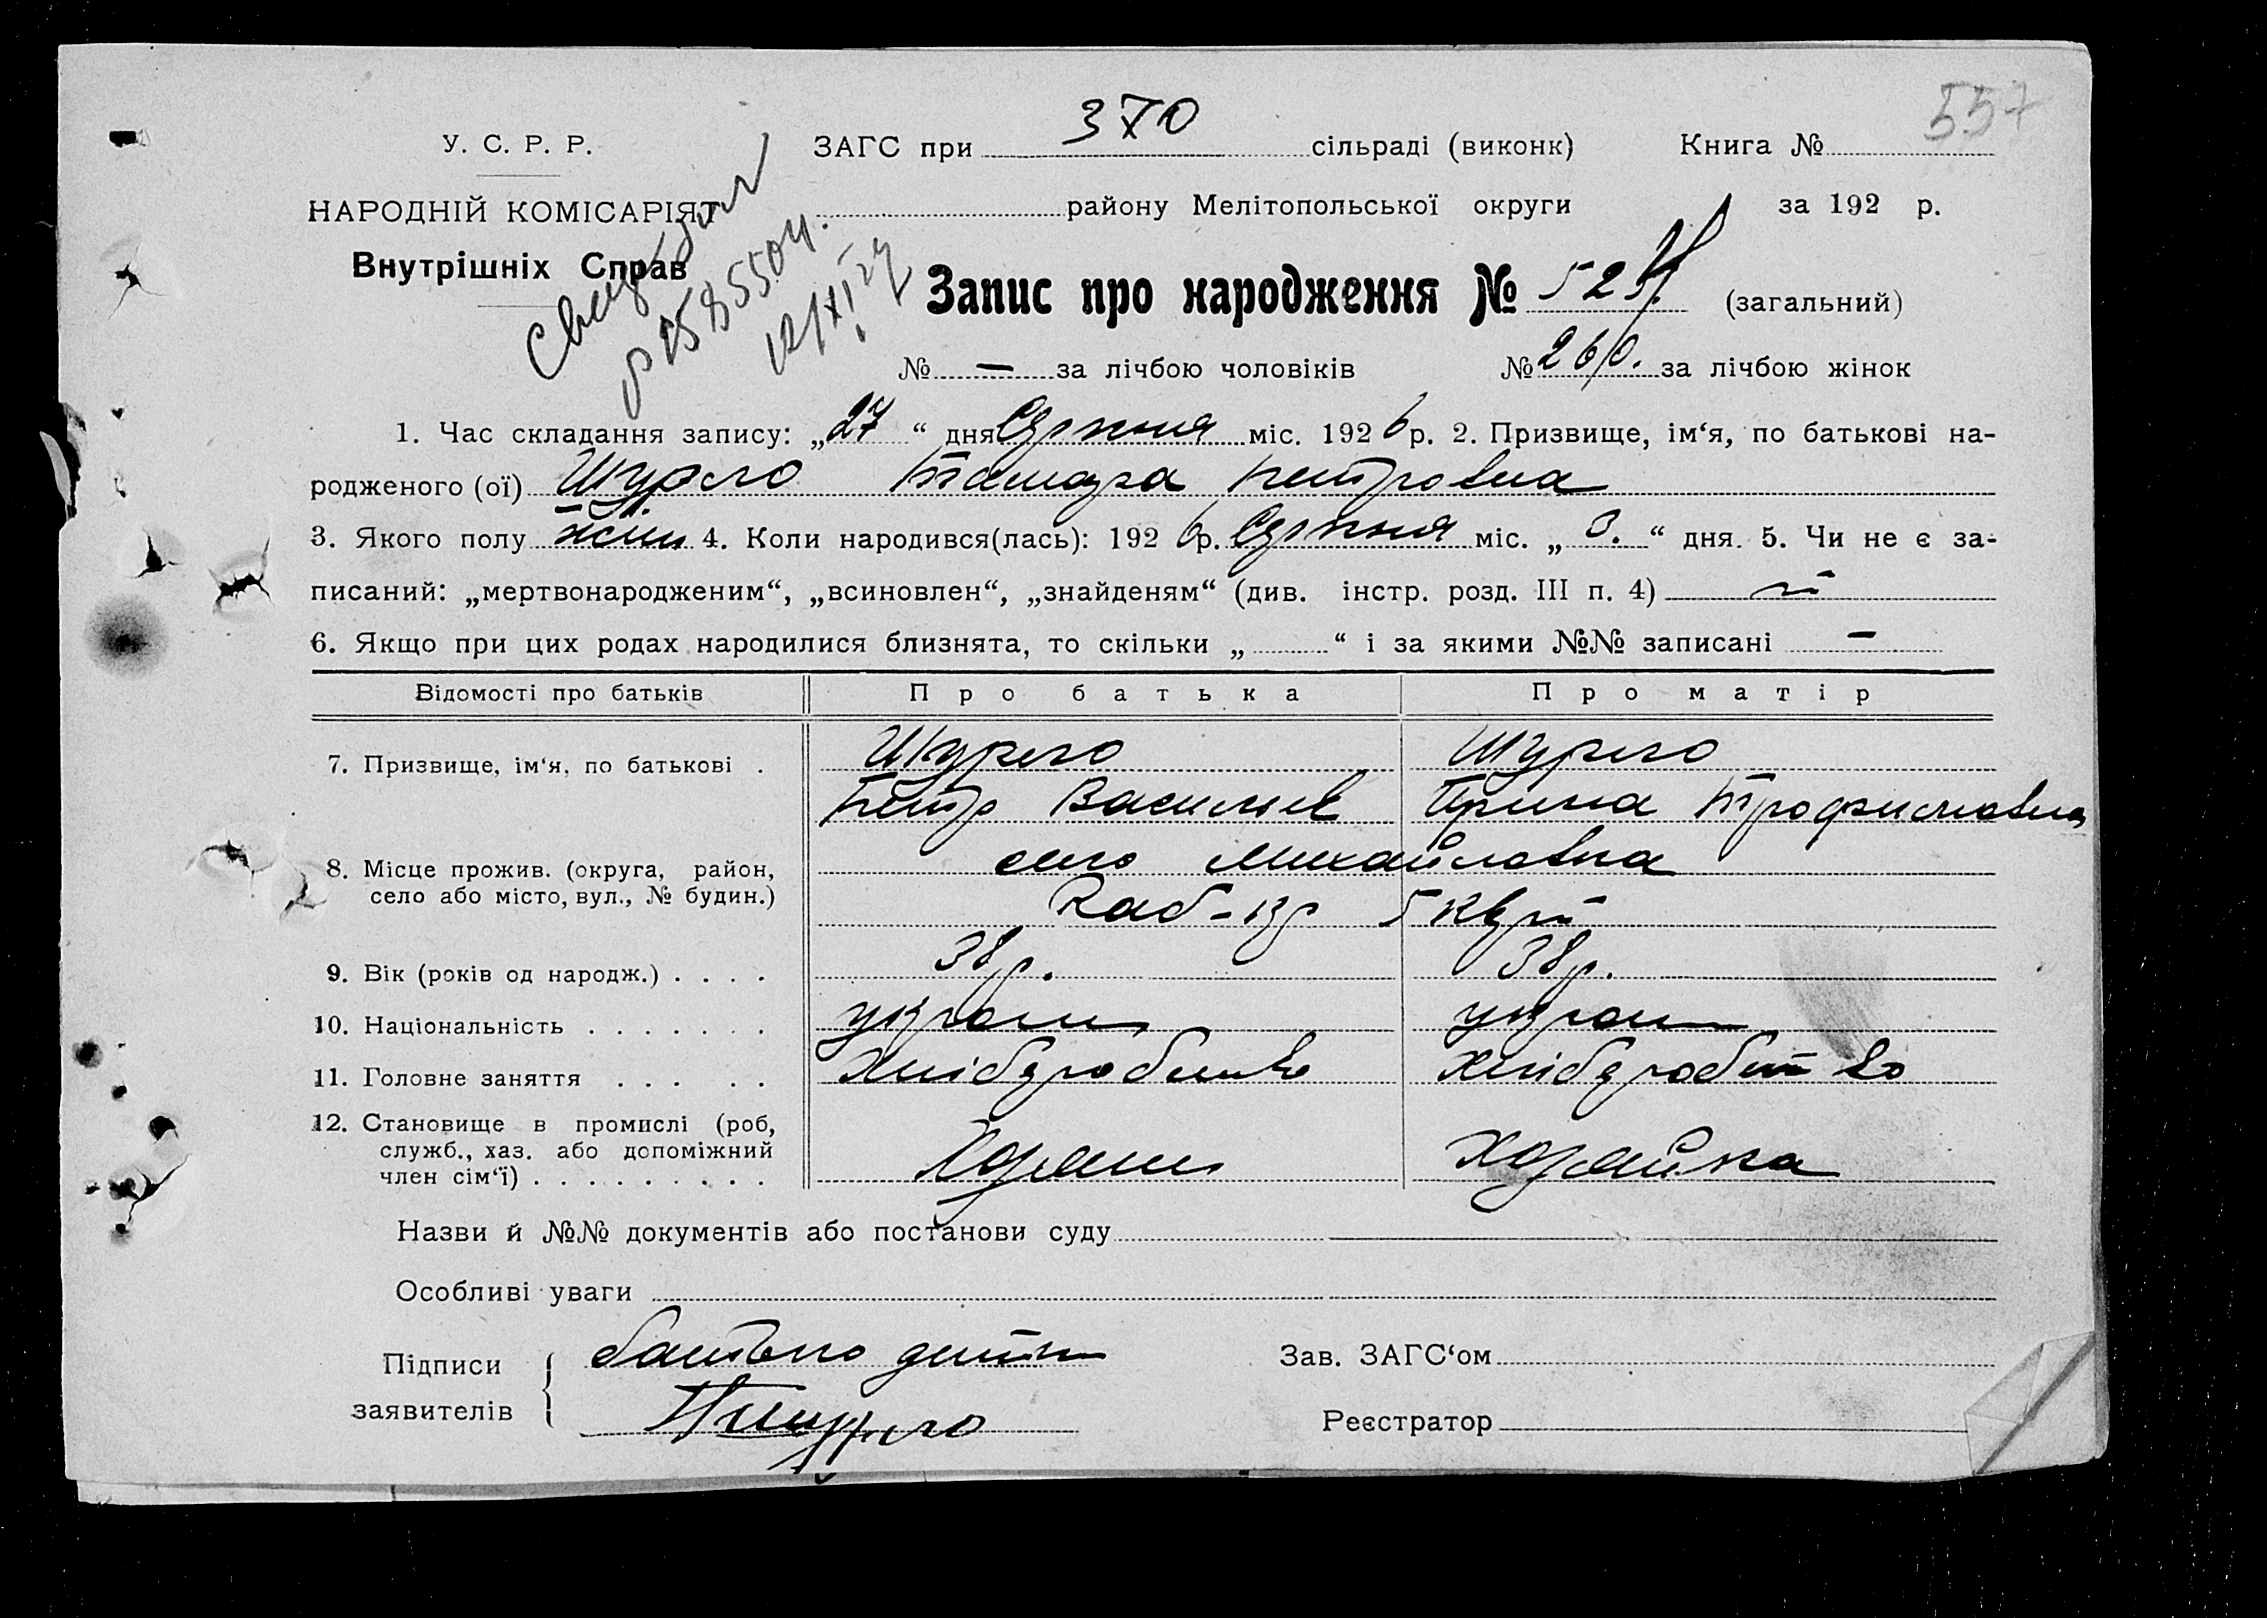 557
370
У. С. Р. Р. ЗАГС при сільраді (виконк) Книга №
НАРОДНІЙ КОМІСАРІЯТ району Мелітопольської округи за 192 р.
Внутрішніх Справ
Запис про народження № (загальний)
№ — за лічбою чоловіків № 260. за лічбою жінок
1. Час складання запису: „27“ дня Серпня міс. 1926 р. 2. Призвище, ім‘я, по батькові на-
родженого (ої) Шурло Тамара Петровна
3. Якого полу жін 4. Коли народився(лась): 1926 р. Серпня міс. „3.“ дня. 5. Чи не є за-
писаний: „мертвонародженим“, „всиновлен“, „знайденям“ (див. інстр. розд. III п. 4)
6. Якщо при цих родах народилися близнята, то скільки „ “ і за якими №№ записані —
Відомості про батьків Про батька Про матір
7. Призвище, ім‘я, по батькові . Шурло Шурло
Петр Васильев Ирина Трофимовна
8. Місце прожив. (округа, район, село або місто, вул., № будин.) село Михайловка
5
9. Вік (років од народж.) . . . . 38 р. 38 р.
10. Національність . . . . . . . україн україн
11. Головне заняття . . . . . Хліборобство хліборобство
12. Становище в промислі (роб,
служб., хаз. або допоміжний
член сім‘ї) . . . . . . . . . Хозяин Хозяйка
Назви й №№ документів або постанови суду
Особливі уваги
Підписи батько дитини Зав. ЗАГС‘ом
заявителів Шурло Реєстратор